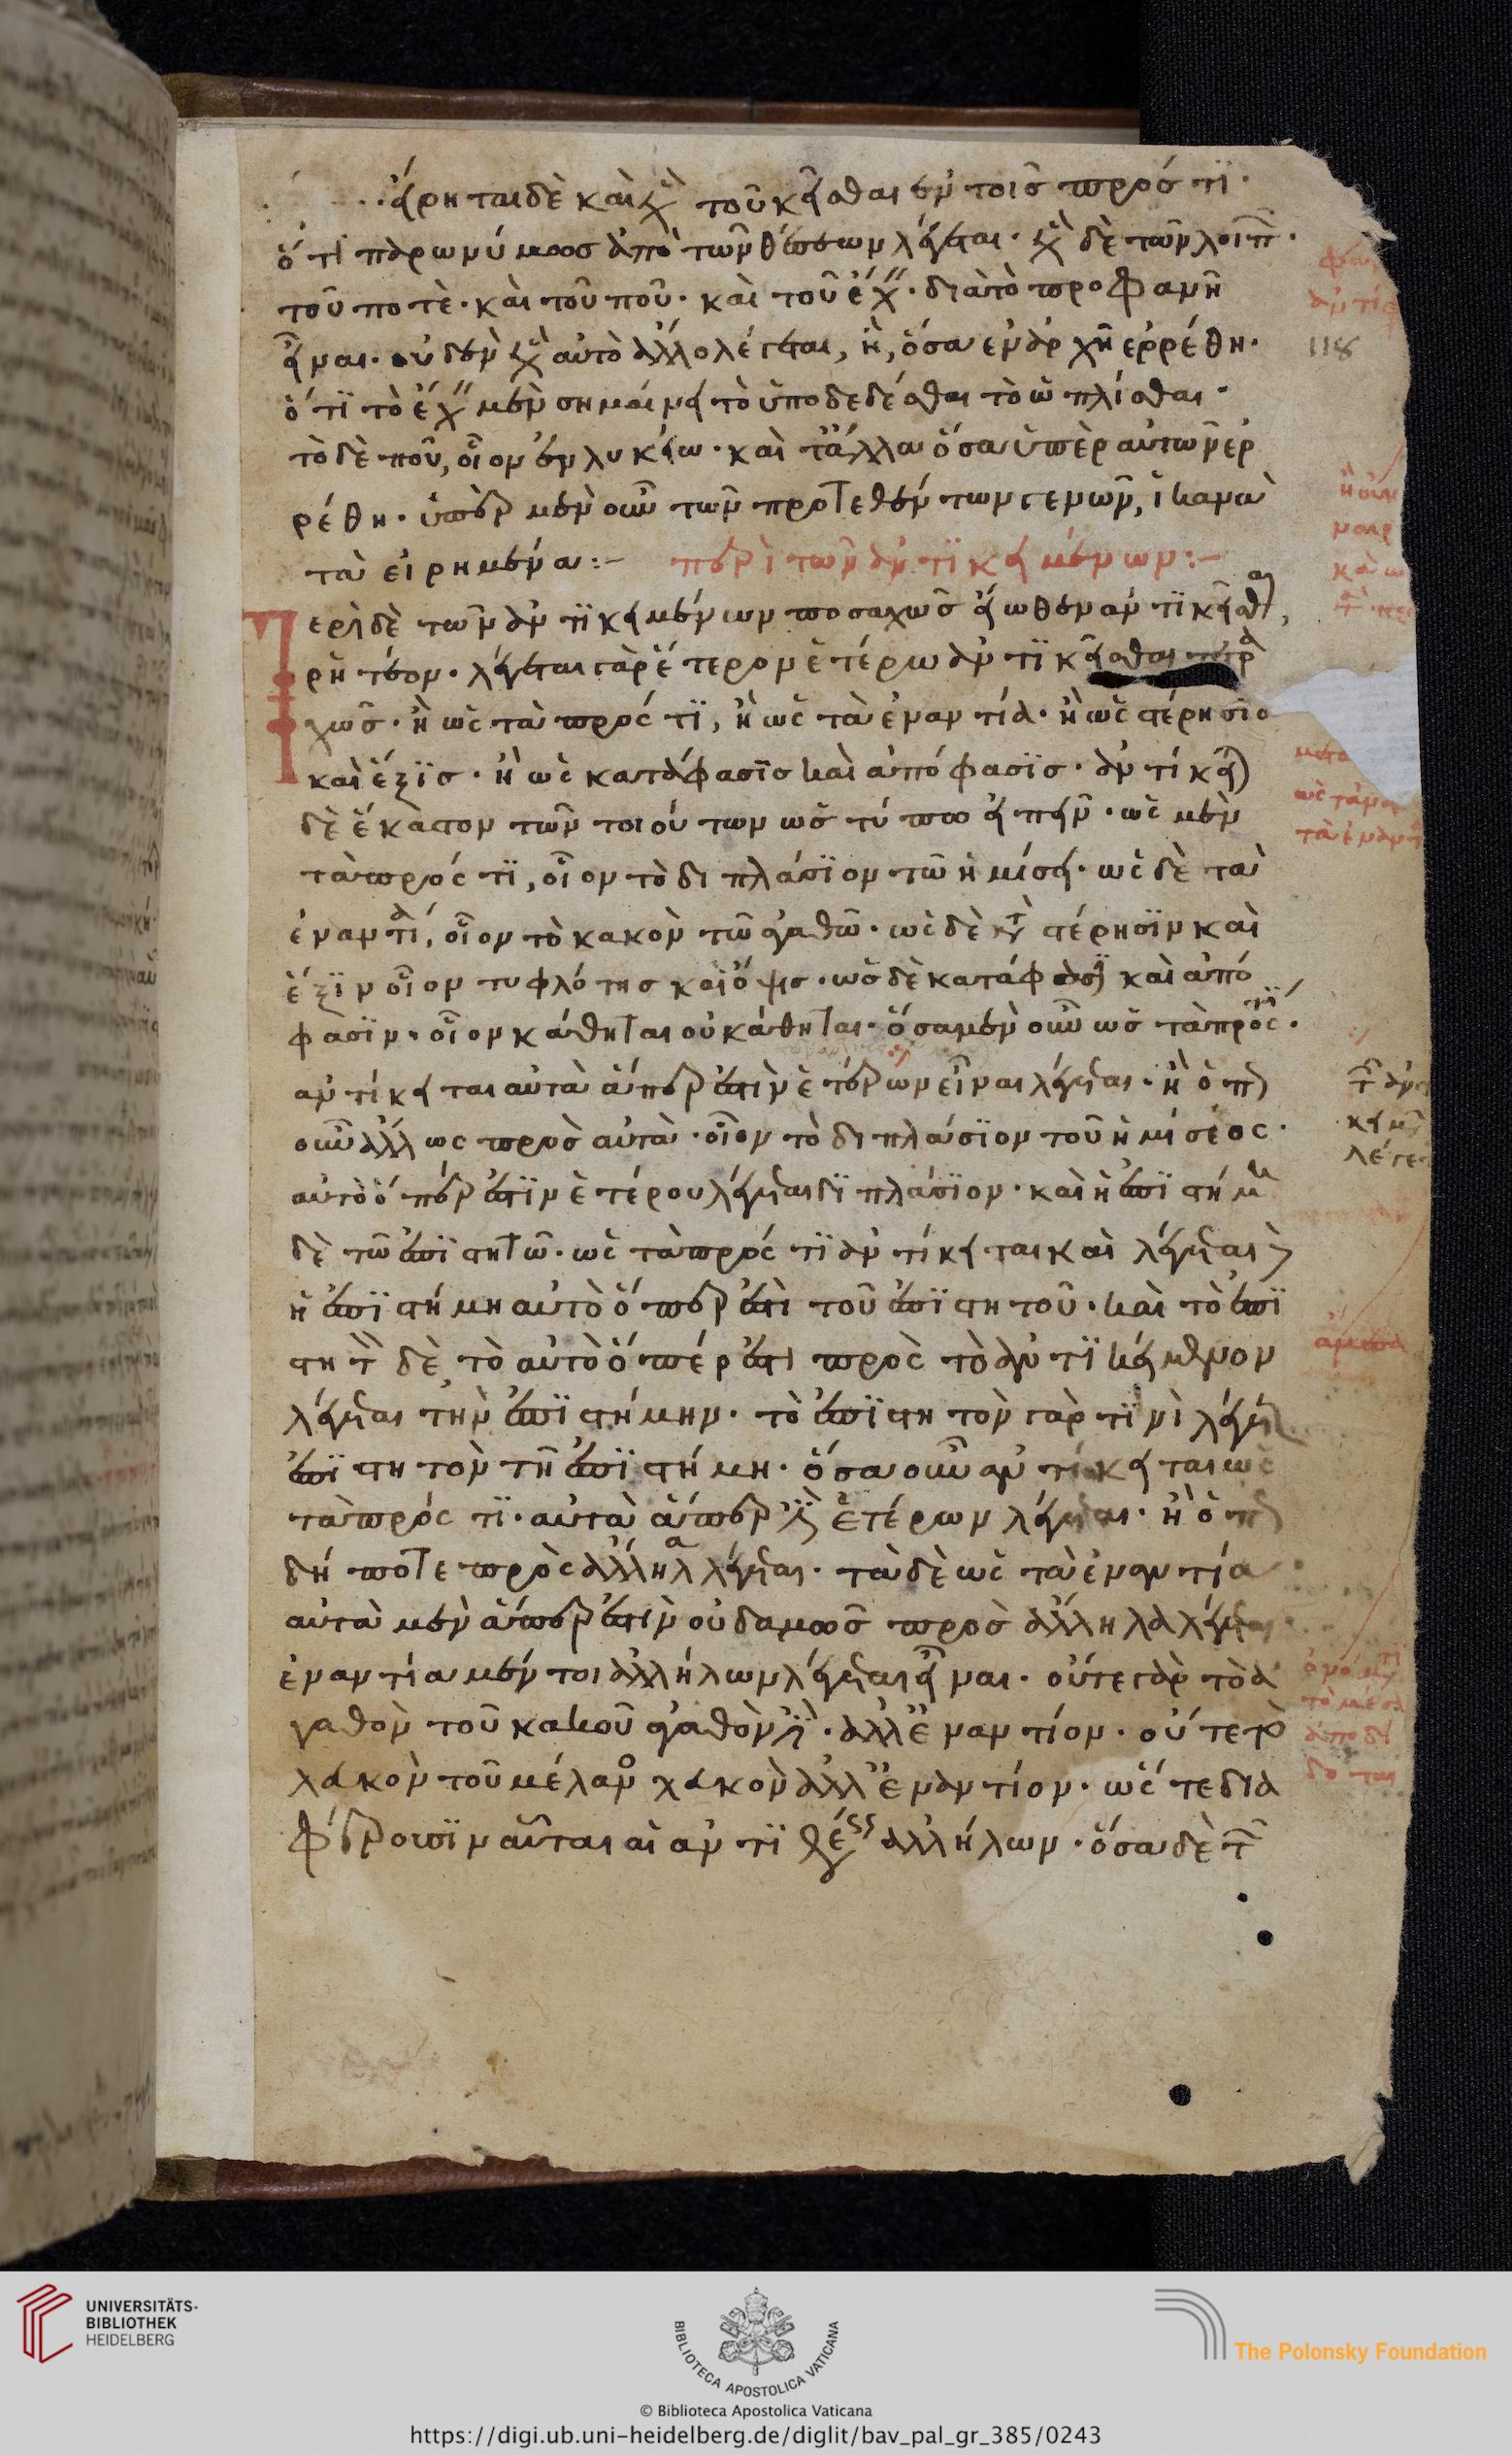 εἴρηται δὲ καὶ περὶ τοῦ κεῖσθαι ἐν τοῖς πρός τι·
ὅτι παρωνύμως ἀπὸ τῶν θέσεων λέγεται· περὶ δὲ τῶν λοιπ
τοῦ ποτὲ· καὶ τοῦ ποῦ· καὶ τοῦ ἔχειν· διὰ τὸ προφανῆ
εἶναι· οὐδὲν περὶ αὐτὸ ἄλλο λέγεται, ἢ, ὅσα ἐν ἀρχῆ ἐρρέθη·
ὅτι τὸ ἔχειν μὲν σημαίνει τὸ ὑποδεδέσθαι τὸ ὡπλίσθαι·
τὸ δὲ ποῦ, οἷον ἐν λυκείω· καὶ τἄλλα ὅσα ὑπὲρ αὐτῶν ἐρ
ρέθη· ὑπὲρ μὲν οὖν τῶν προτεθέντων γενῶν, ἱκανὰ
τὰ εἰρημένα:– περὶ τῶν ἀντικειμένων:–
Περὶ δὲ τῶν ἀντικειμένων ποσαχῶς εἴωθεν ἀντικεῖσθαι,
ρητέον· λέγεται γὰρ ἕτερον ἑτέρω ἀντικεῖσθαι τετρα
χῶς· ἢ ὡς τὰ πρός τι, ἢ ὡς τὰ ἐναντία· ἢ ὡς στέρησις
καὶ ἕξις· ἢ ὡς κατάφασις καὶ ἀπόφασις· ἀντίκειται
δὲ ἕκαστον τῶν τοιούτων ὡς τύπω εἰπεῖν· ὡς μὲν
τὰ πρός τι, οἷον τὸ διπλάσιον τῶ ἡμίσει· ὡς δὲ τὰ
ἐναντία, οἷον τὸ κακὸν τῶ ἀγαθῶ· ὡς δὲ κατὰ στέρησιν καὶ
ἕξιν οἷον τυφλότης καὶ ὄψις· ὡς δὲ κατάφασις καὶ ἀπό
φασιν· οἷον κάθηται οὐ κάθηται· ὅσα μὲν οὖν ὡς τὰ πρός τι·
ἀντίκειται αὐτὰ ἅπερ ἐστὶν ἑτέρων εἶναι λέγεται· ἢ ὁπωσ
οῦν ἄλλως πρὸς αὐτὰ· οἷον τὸ διπλάσιον τοῦ ἡμίσεος·
αὐτὸ ὅπερ ἐστὶν ἑτέρου λέγεται διπλάσιον· καὶ ἡ ἐπιστήμη
δὲ τῶ ἐπιστητῶ· ὡς τὰ πρός τι ἀντίκειται καὶ λέγεται
ἡ ἐπιστήμη αὐτὸ ὅπερ ἐστὶ τοῦ ἐπιστητοῦ· καὶ τὸ ἐπι
στητὸν δὲ, τὸ αὐτὸ ὅπέρ ἐστι πρὸς τὸ ἀντικείμενον
λέγεται τὴν ἐπιστήμην· τὸ ἐπιστητὸν γὰρ τινὶ λέγεται
ἐπιστητὸν τῆ ἐπιστήμη· ὅσα οὖν ἀντίκειται ὡς
τὰ πρός τι· αὐτὰ ἅπερ ἐστὶν ἑτέρων λέγεται· ἢ ὁπωσ
δήποτε πρὸς ἄλληλα λέγεται· τὰ δὲ ὡς τὰ ἐναντία
αὐτὰ μὲν ἅπερ ἐστὶν οὐδαμῶς πρὸς ἄλληλα λέγεται
ἐναντία μέντοι ἀλλήλων λέγεται εἶναι· οὔτε γὰρ τὸ ἀ
γαθὸν τοῦ κακοῦ ἀγαθὸν ἐστὶν· ἀλλ' ἐναντίον· οὔτε τὸ
λευκὸν τοῦ μέλανος λευκὸν ἀλλ' ἐναντίον· ὥστε δια
φέρουσιν αὗται αἱ ἀντιθέσεις ἀλλήλων· ὅσα δὲ τῶν
118
UNIVERSITÄTS-
BIBLIOTHEK
HEIDELBERG
BIBLIOTECA APOSTOLICA VATICANA
© Biblioteca Apostolica Vaticana
The Polonsky Foundation
https://digi.ub.uni-heidelberg.de/diglit/bav_pal_gr_385/0243